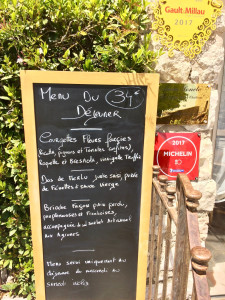 Gault Millau
2017
Menu Du 34€
Déjeuner
Courgettes Fleurs farcies
Ricotta, pignons et Tomates confites,
Roquette et Bresaola, vinaigrette Truffes
Dos de Merlu juste saisi, purée
de et sauce vierge
Brioche façon pain perdu,
pamplemousses et framboises,
accompagnée de Artisanal
aux Agrumes
Menu servi uniquement au
déjeuner du mercredi au
samedi
2017
MICHELIN